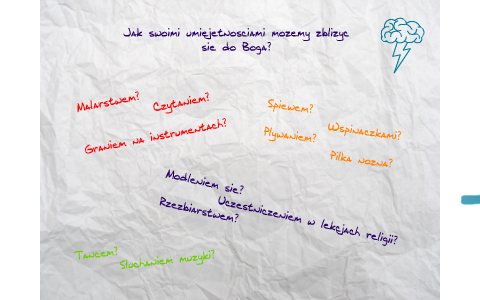 Jak swoimi umiejetnosciami mozemy zblizyc
sie do Boga?
Malarstwem?
Czytaniem?
Graniem na instrumentach?
Spiewem?
Plywaniem?
Wspinaczkami?
Pilka nozna?
Modleniem sie?
Uczestniczeniem w lekcjach religii?
Rzezbiarstwem?
Tancem?
Sluchaniem muzyki?